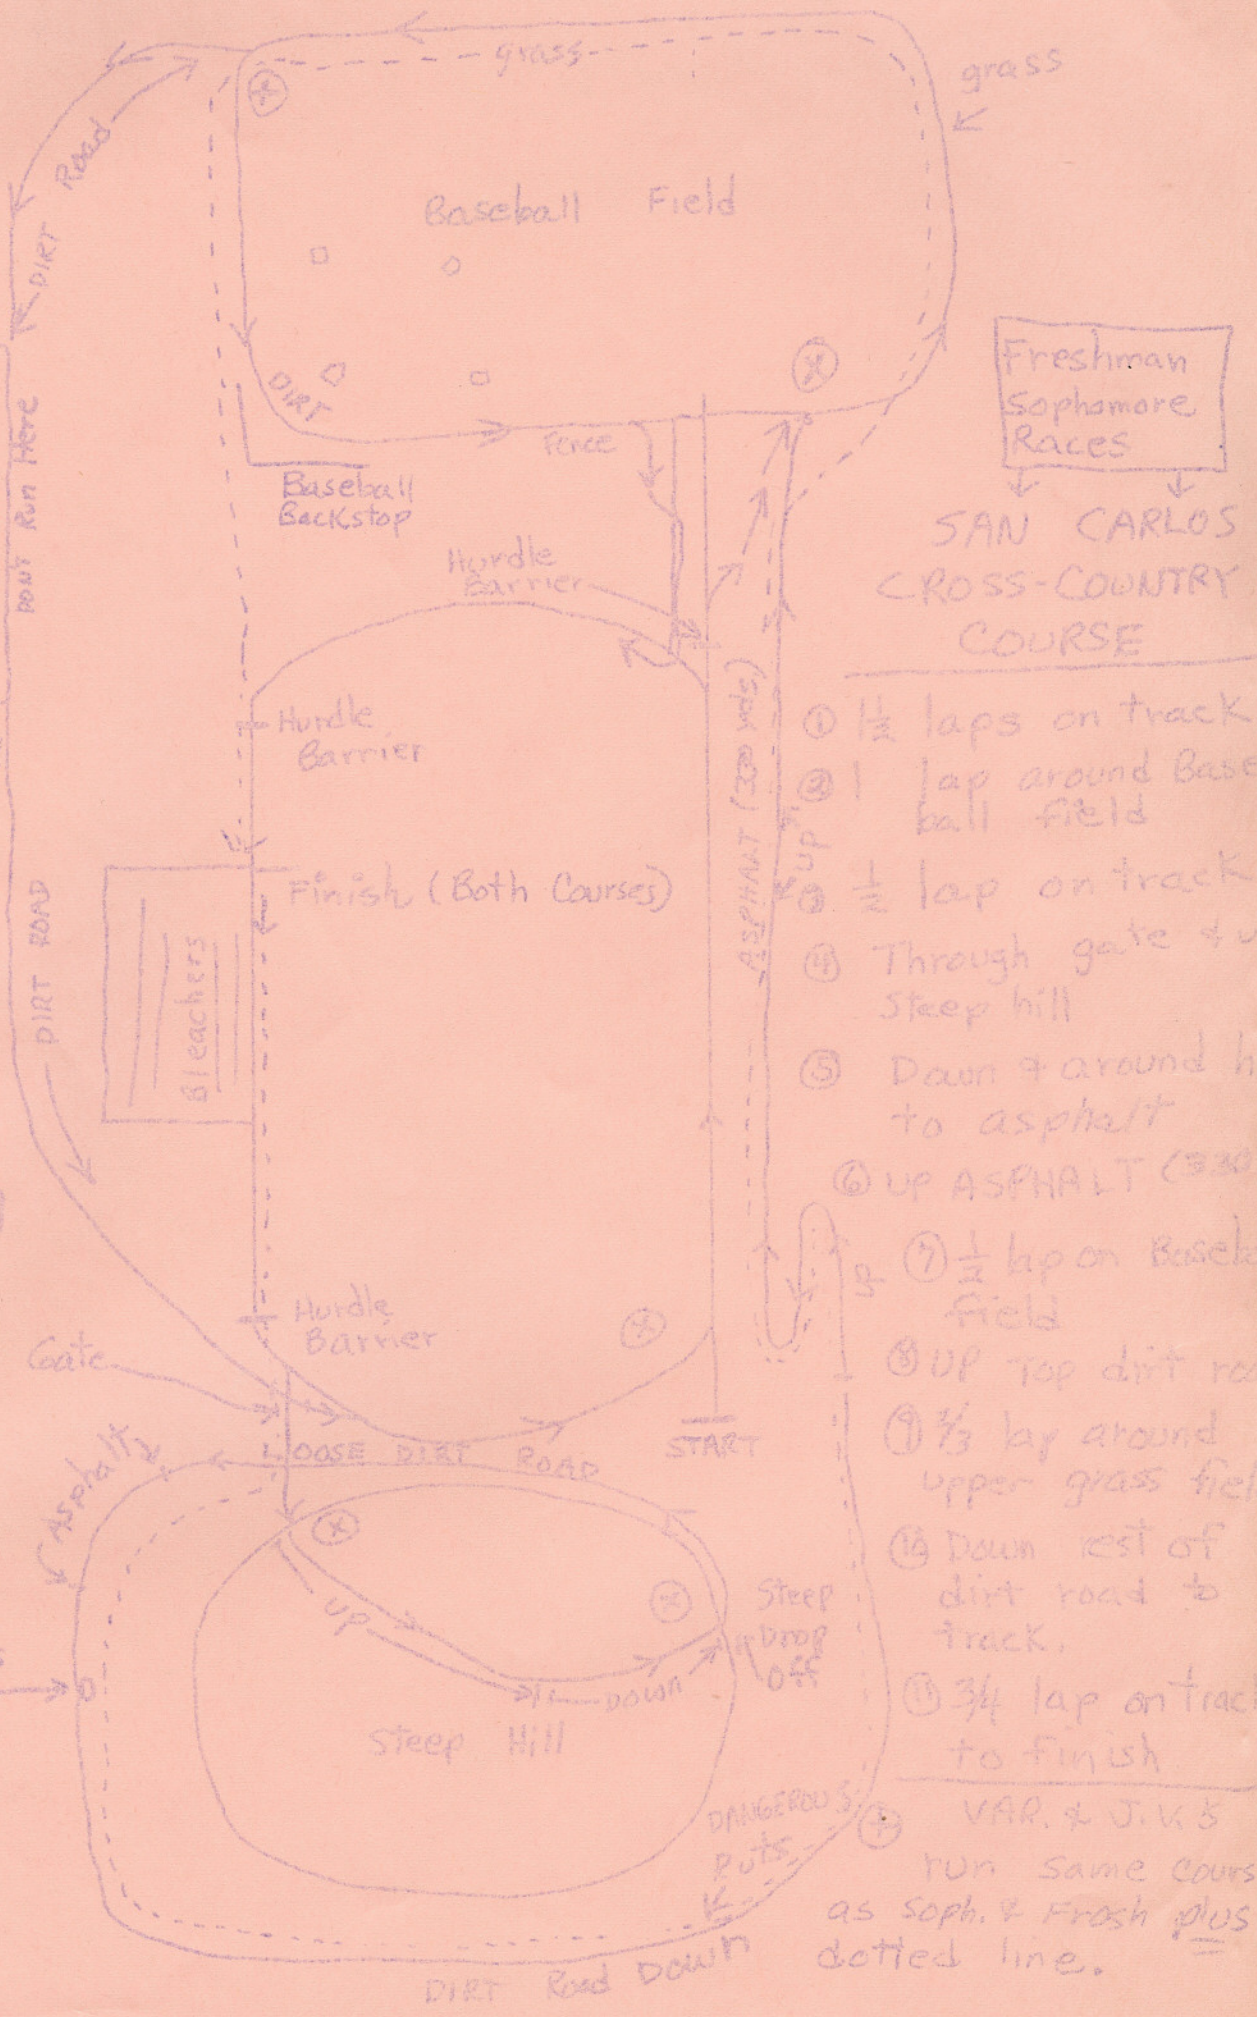 grass
grass
Road
DIRT
Baseball Field
DIRT
Fence
Baseball
Backstop
DON'T Run Here
Hurdle
Barrier
Hurdle
Barrier
Finish (Both Courses)
Bleachers
DIRT ROAD
ASPHALT (330 yds)
UP
UP
Hurdle
Barrier
Gate
START
LOOSE DIRT ROAD
Asphalt
UP
DOWN
Steep
Drop
Off
Steep Hill
DANGEROUS
Ruts
DIRT Road Down
Freshman
Sophomore
Races
SAN CARLOS
CROSS-COUNTRY
COURSE
① 1½ laps on track
② 1 lap around Base
ball field
③ ½ lap on track
④ Through gate & u
Steep hill
⑤ Down & around h
to asphalt
⑥ UP ASPHALT (330
⑦ ½ lap on Baseba
field
⑧ UP Top dirt roa
⑨ ⅔ lap around
upper grass fiel
⑩ Down rest of
dirt road to
track.
⑪ 3/4 lap on trac
to finish
VAR. & J.V.'s
run same cours
as Soph. & Frosh plus
dotted line.